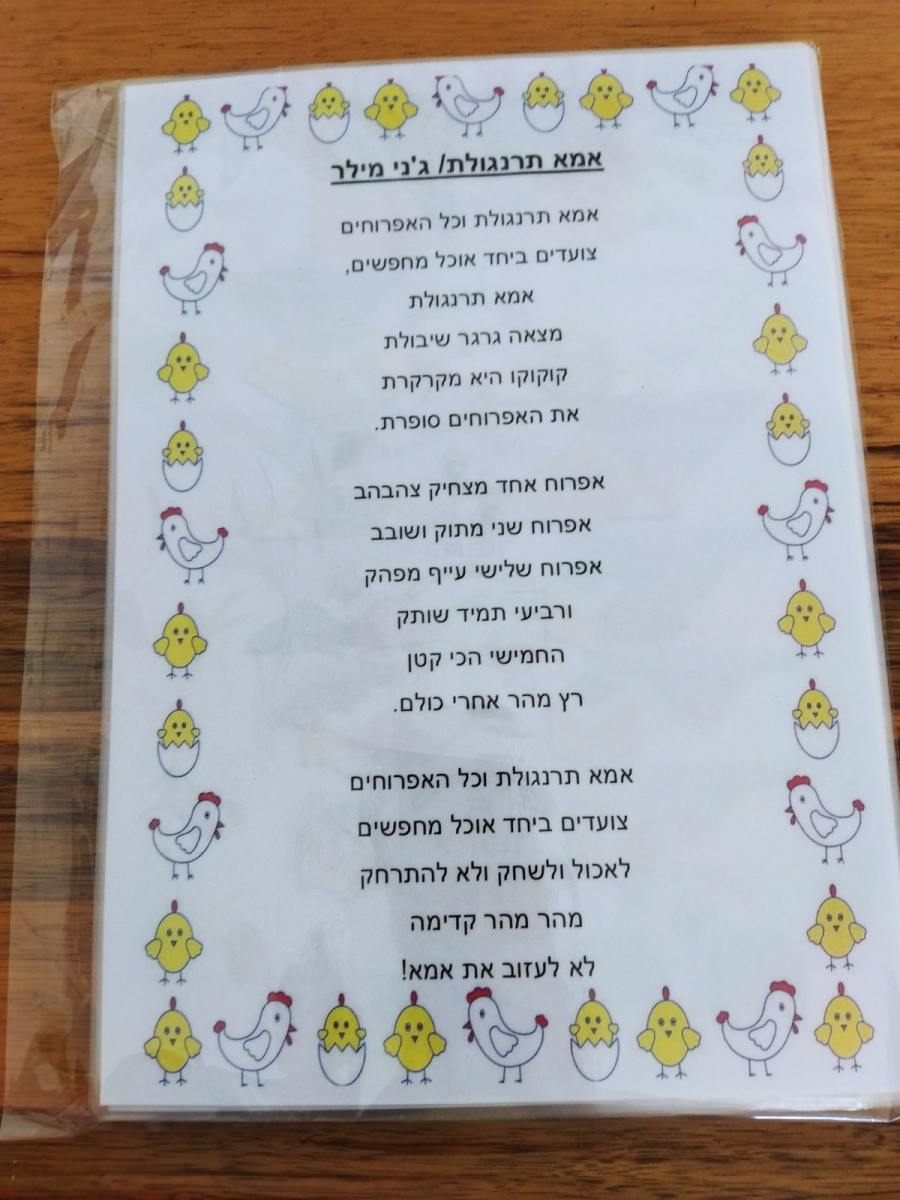 אמא תרנגולת/ ג'ני מילר
אמא תרנגולת וכל האפרוחים
צועדים ביחד אוכל מחפשים,
אמא תרנגולת
מצאה גרגר שיבולת
קוקוקו היא מקרקרת
את האפרוחים סופרת.
אפרוח אחד מצחיק צהבהב
אפרוח שני מתוק ושובב
אפרוח שלישי עייף מפהק
ורביעי תמיד שותק
החמישי הכי קטן
רץ מהר אחרי כולם.
אמא תרנגולת וכל האפרוחים
צועדים ביחד אוכל מחפשים
לאכול ולשחק ולא להתרחק
מהר מהר קדימה
לא לעזוב את אמא!